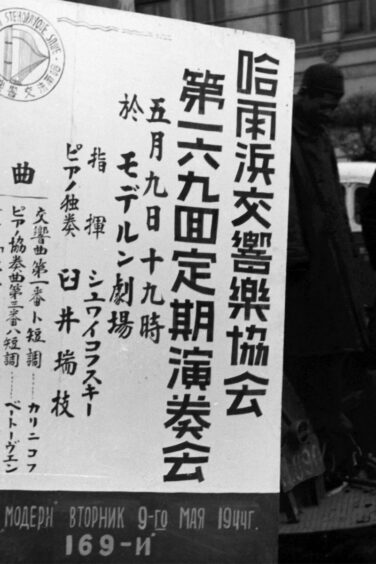 哈爾浜交響樂協会
第一六九回定期演奏会
五月九日十九時
於 モデルン劇場
指揮 シュワイコフスキー
ピアノ独奏 臼井瑞枝
曲
交響曲第一番ト短調 ‥‥ カリニコフ
ピアノ協奏曲第三番ハ短調 ‥‥ ベートーヴエン
"МОДЕРН" ВТОРНИК 9-го МАЯ 1944г.
169-й